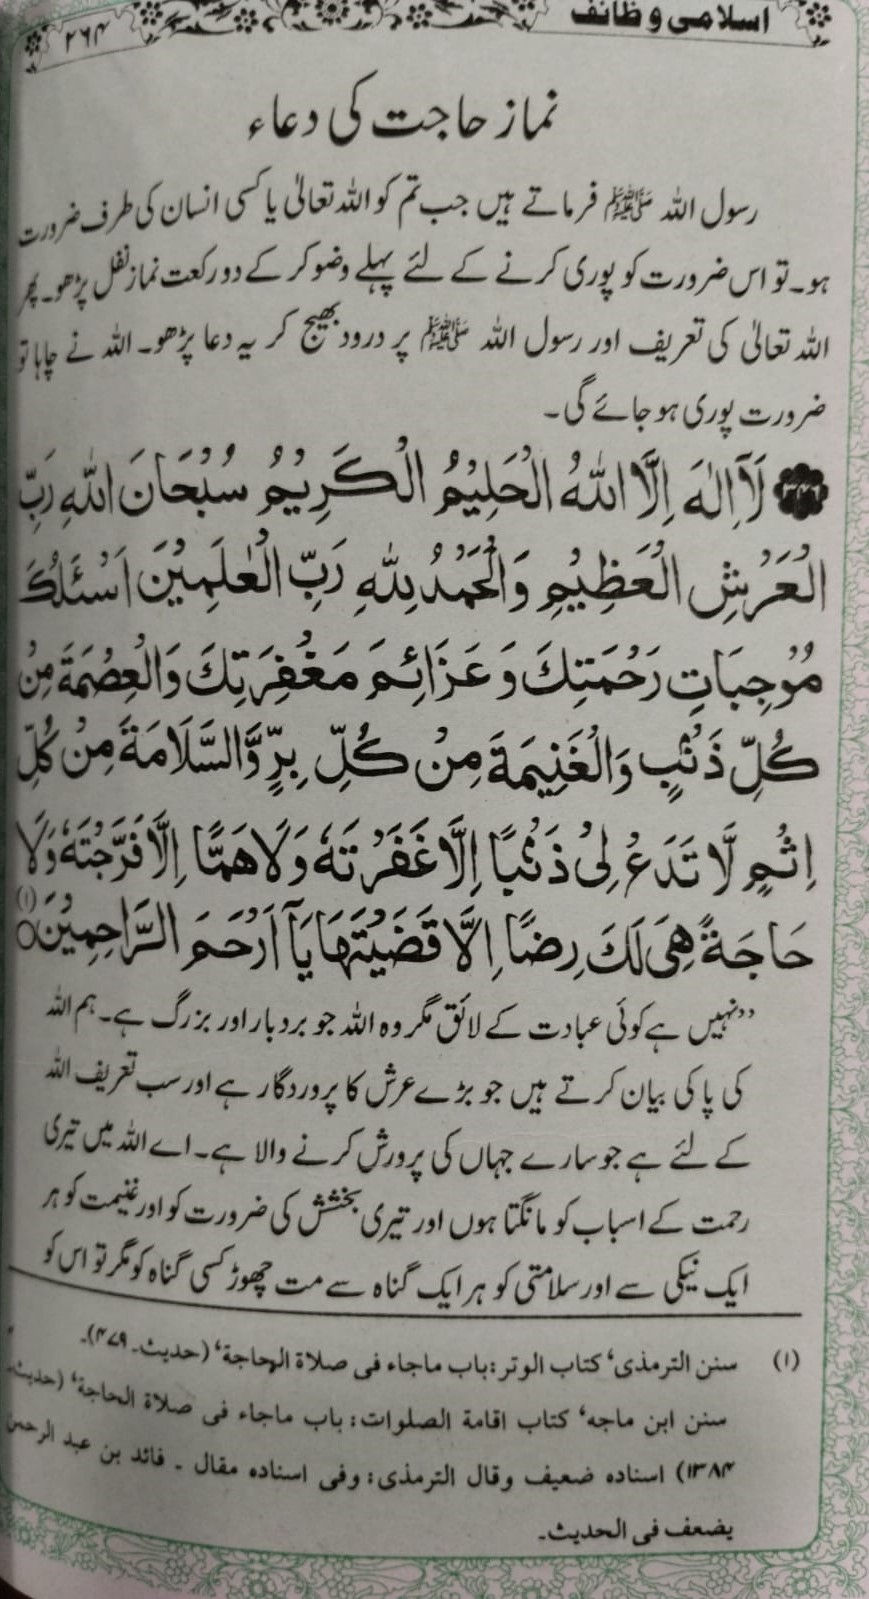 اسلامی وظائف
۲۶۴
نماز حاجت کی دعاء
رسول اللہ ﷺ فرماتے ہیں جب تم کو اللہ تعالیٰ یا کسی انسان کی طرف ضرورت
ہو۔ تو اس ضرورت کو پوری کرنے کے لئے پہلے وضو کر کے دو رکعت نماز نفل پڑھو۔ پھر
اللہ تعالیٰ کی تعریف اور رسول اللہ ﷺ پر درود بھیج کر یہ دعا پڑھو۔ اللہ نے چاہا تو
ضرورت پوری ہو جائے گی۔
لَآ اِلٰهَ اِلَّا اللّٰهُ الْحَلِيْمُ الْكَرِيْمُ سُبْحَانَ اللّٰهِ رَبِّ
الْعَرْشِ الْعَظِيْمِ وَالْحَمْدُ لِلّٰهِ رَبِّ الْعٰلَمِيْنَ اَسْئَلُكَ
مُوْجِبَاتِ رَحْمَتِكَ وَعَزَائِمَ مَغْفِرَتِكَ وَالْعِصْمَةَ مِنْ
كُلِّ ذَنْبٍ وَالْغَنِيْمَةَ مِنْ كُلِّ بِرٍّ وَّالسَّلَامَةَ مِنْ كُلِّ
اِثْمٍ لَّا تَدَعْ لِيْ ذَنْبًا اِلَّا غَفَرْتَهٗ وَلَا هَمًّا اِلَّا فَرَّجْتَهٗ وَلَا
حَاجَةً هِيَ لَكَ رِضًا اِلَّا قَضَيْتَهَا يَآ اَرْحَمَ الرَّاحِمِيْنَ (۱)
”نہیں ہے کوئی عبادت کے لائق مگر وہ اللہ جو بردبار اور بزرگ ہے۔ ہم اللہ
کی پاکی بیان کرتے ہیں جو بڑے عرش کا پروردگار ہے اور سب تعریف اللہ
کے لئے ہے جو سارے جہاں کی پرورش کرنے والا ہے۔ اے اللہ میں تیری
رحمت کے اسباب کو مانگتا ہوں اور تیری بخشش کی ضرورت کو اور غنیمت کو ہر
ایک نیکی سے اور سلامتی کو ہر ایک گناہ سے مت چھوڑ کسی گناہ کو مگر تو اس کو
(۱) سنن الترمذی، کتاب الوتر: باب ماجاء فی صلاة الحاجة، (حدیث۔ ۴۷۹)۔
سنن ابن ماجه، کتاب اقامة الصلوات: باب ماجاء فی صلاة الحاجة، (حدیث۔
۱۳۸۴) اسناده ضعیف وقال الترمذی: وفی اسناده مقال ۔ فائد بن عبد الرحمن
یضعف فی الحدیث۔